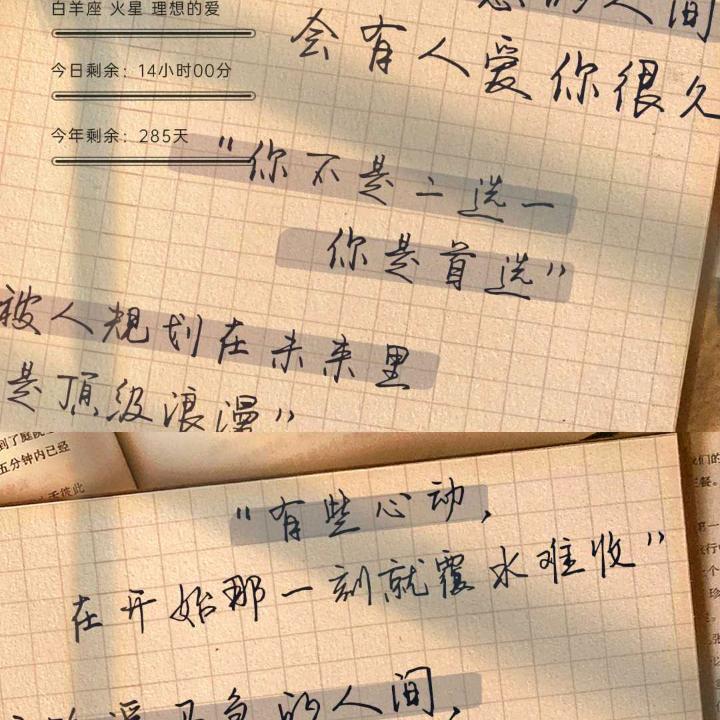 白羊座 火星 理想的爱
今日剩余：14小时00分
今年剩余：285天
的人间
会有人爱你很久
"你不是二选一
你是首选"
被人规划在未来里
是顶级浪漫"
到了庭院
五分钟内已经
"有些心动，
在开始那一刻就覆水难收"
的人间，